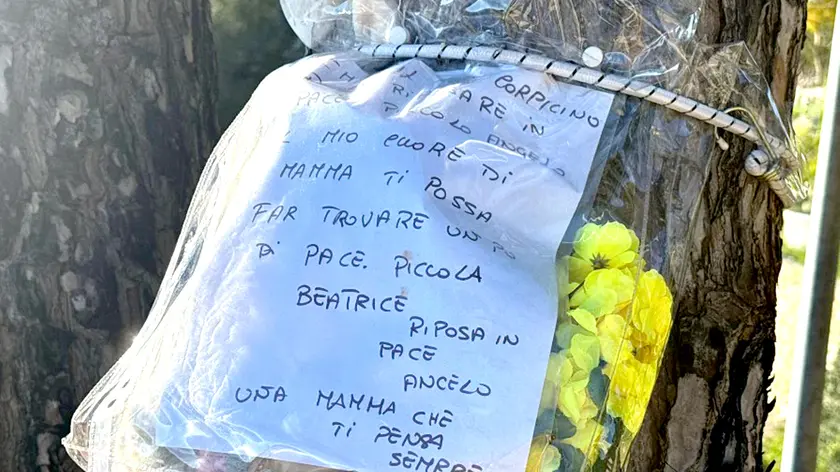 CORPICINO
RIPOSARE IN
PACE PICCOLO ANGELO
IL MIO CUORE DI
MAMMA TI POSSA
FAR TROVARE UN PO
DI PACE. PICCOLA
BEATRICE
RIPOSA IN
PACE
ANGELO
UNA MAMMA CHE
TI PENSA
SEMPRE